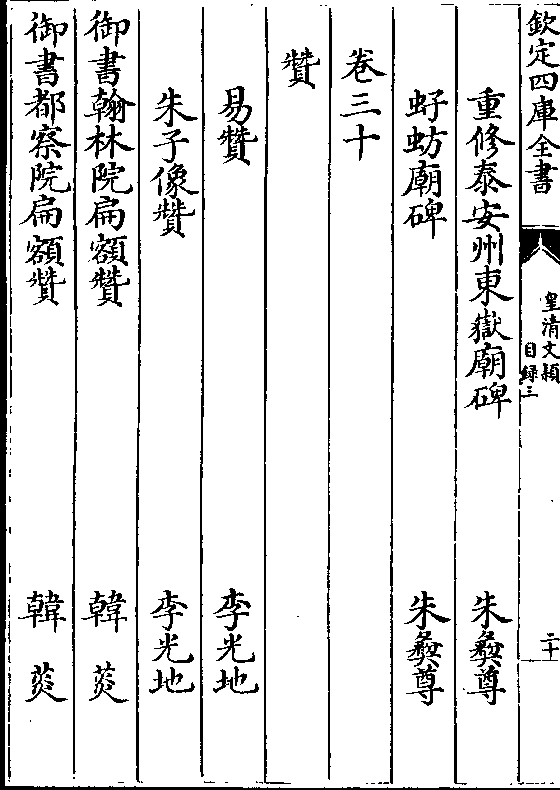 欽定四庫全書
皇清文穎
目録三
二十
重修泰安州東嶽廟碑 朱彝尊
虸蚄廟碑 朱彝尊
卷三十
贊
易贊 李光地
朱子像贊 李光地
御書翰林院扁額贊 韓菼
御書都察院扁額贊 韓菼